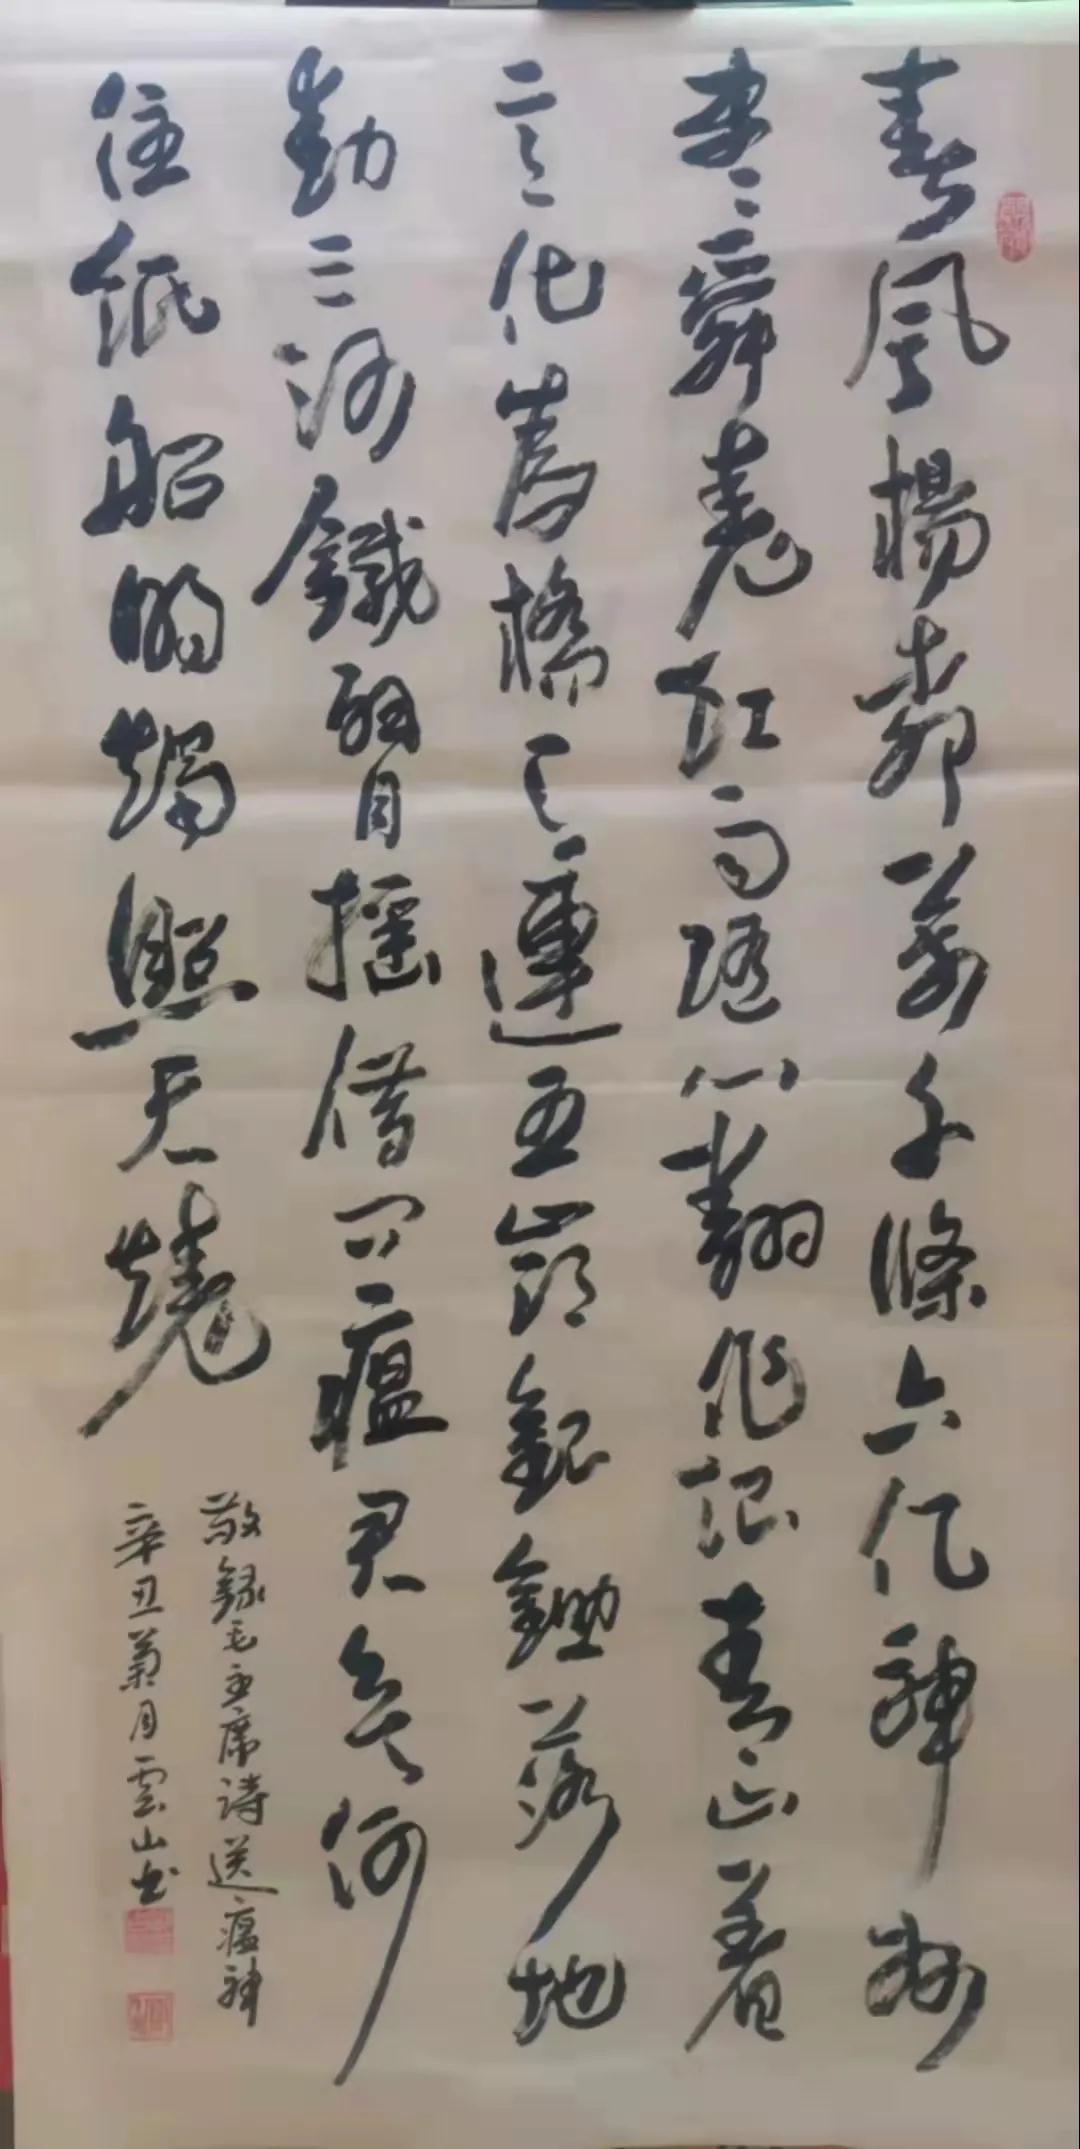 春風楊柳萬千條六億神州
盡舜堯紅雨隨心翻作浪青山着
意化為橋天連五嶺銀鋤落地
動三河鐵臂搖借問瘟君欲何
往紙船明燭照天燒
敬錄毛主席詩送瘟神
辛丑菊月雲山书